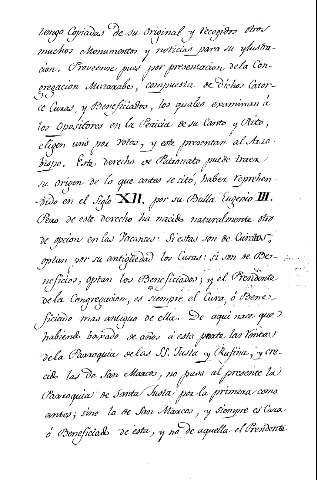 tengo Copiadas de su Original y recogidos otros
muchos Monumentos y noticias para su ylustra-
cion. Proveense pues por presentacion de la Con-
gregacion Muzarabe, compuesta de dichos Cator-
ce Curas, y Beneficiados, los quales examinan á
los Opositores en la Pericia de su Canto y Rito,
eligen uno por votos, y este presentan al Arzo-
bispo. Este derecho de Patronato puede traer
su origen de lo que antes se citó, haber reprehen-
dido en el Siglo XII. por su Bulla Eugenio III.
Pero de este derecho ha nacido naturalmente otro
de opcion en las Vacantes: Si estas son de Curatos,
optan por su antigüedad los Curas: si son de Be-
neficios, optan los Beneficiados; y el Presidente
de la Congregacion, es siempre el Cura, ó Bene-
ficiado mas antiguo de ella. De aqui nace que
habiendo baxado de años á esta parte las Rentas
de la Parroquia de las SS. Justa y Rufina, y cre-
cido las de San Marcos, no pasa al presente la
Parroquia de Santa Justa por la primera como
antes; sino la de San Marcos, y siempre es Cura
ó Beneficiado de esta, y no de aquella el Presidente